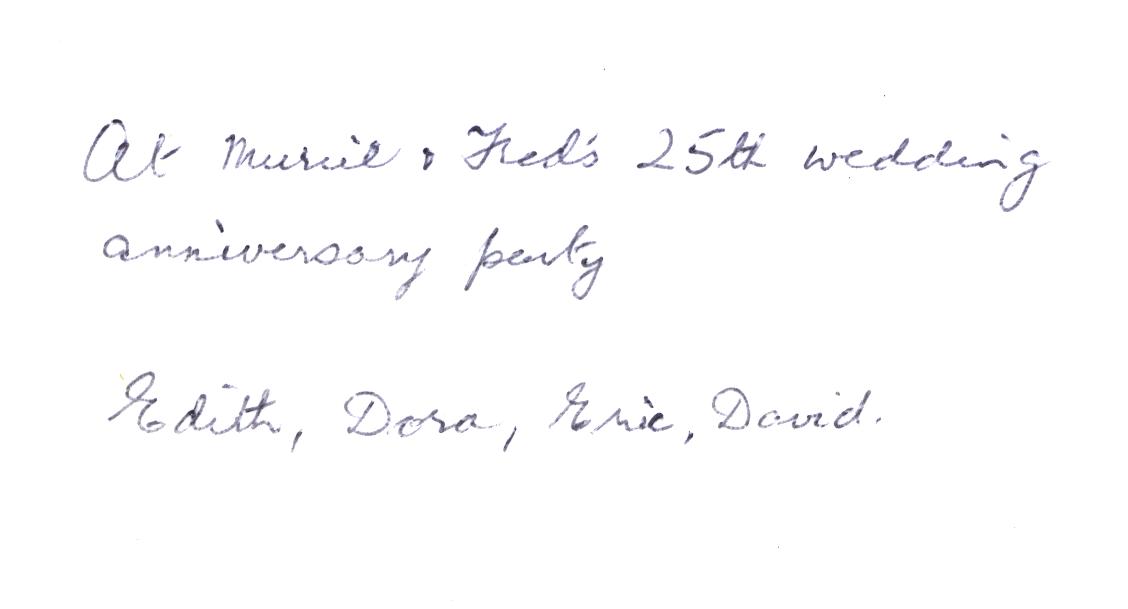 At Muriel & Fred's 25th wedding
anniversary party
Edith, Dora, Eric, David.